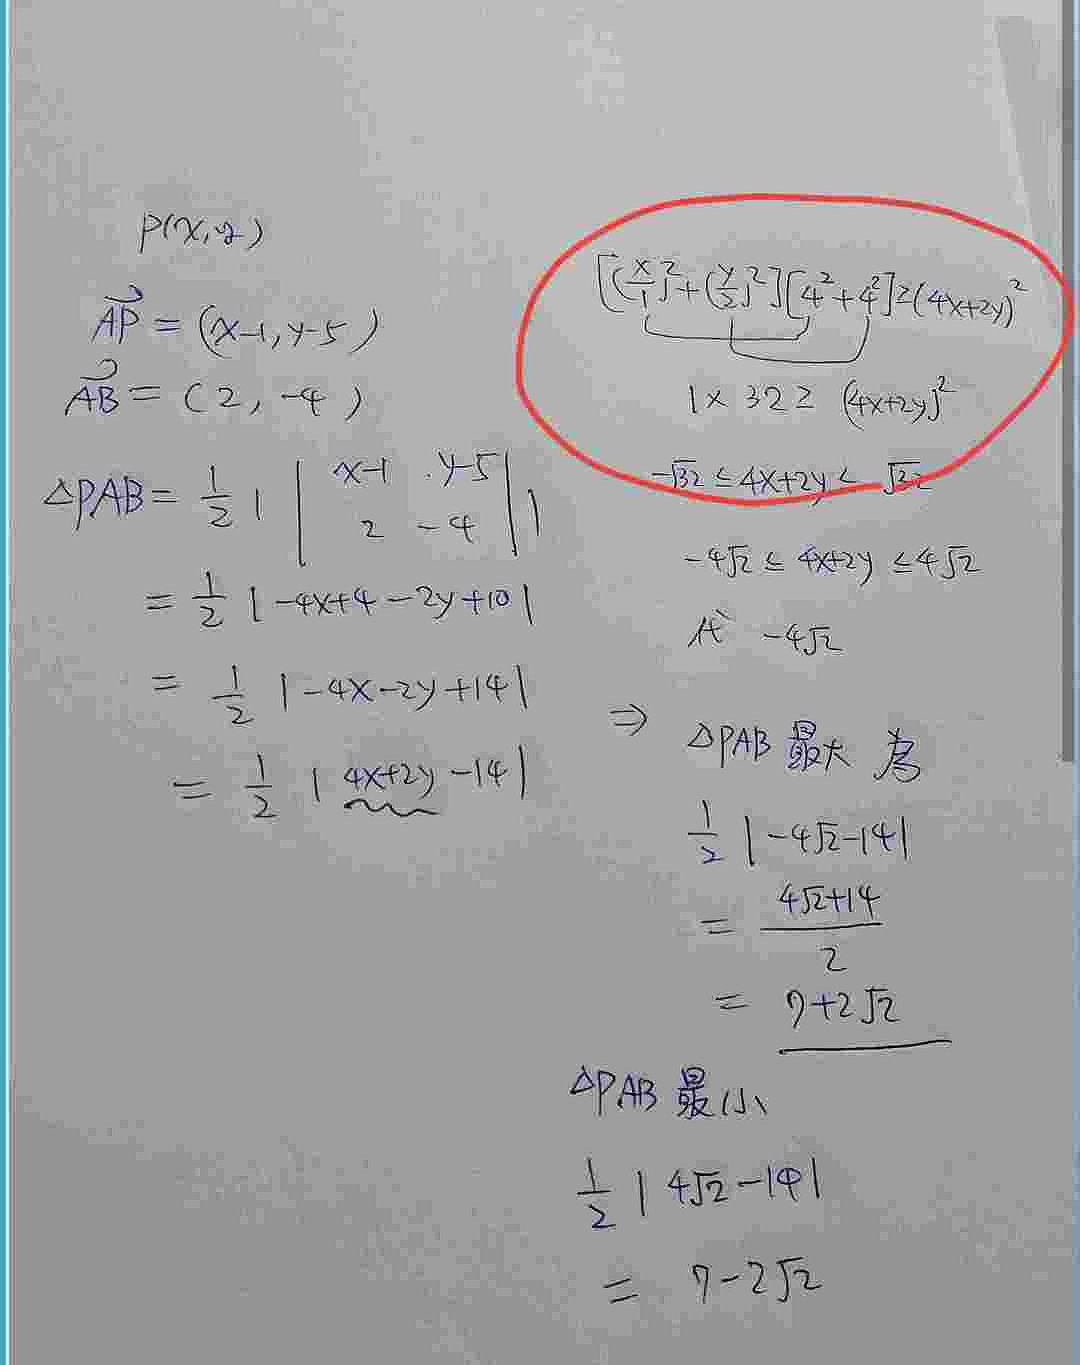 P(x,y)
AP⃗ = (x-1, y-5)
AB⃗ = (2, -4)
△PAB = 1/2 | | x-1 y-5 |
2 -4 | |
= 1/2 | -4x+4-2y+10 |
= 1/2 | -4x-2y+14 |
= 1/2 | 4x+2y-14 |
[(x/1)²+(y/2)²][4²+4²]≥(4x+2y)²
1×32≥(4x+2y)²
-√32≤4x+2y≤√32
-4√2≤4x+2y≤4√2
代 -4√2
⇒ △PAB 最大 為
1/2 |-4√2-14|
= (4√2+14)/2
= 7+2√2
△PAB 最小
1/2 | 4√2-14 |
= 7-2√2